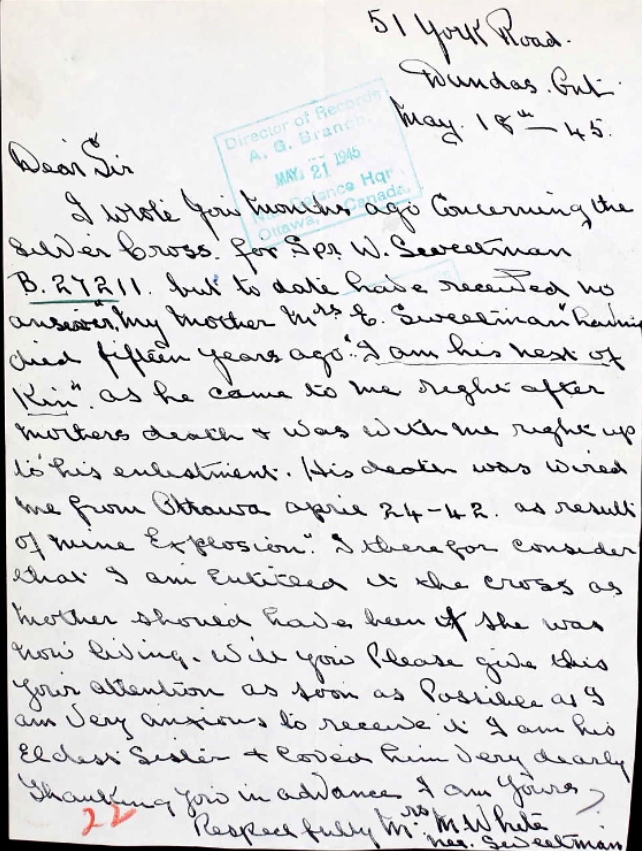 51 York Road.
Dundas. Ont.
May. 18th - 45.
Director of Records
A. G. Branch.
MAY 21 1945
Defence Hqr
Ottawa, Canada.
Dear Sir
I wrote you months ago Concerning the
Silver Cross. for Spr. W. Sweetman
B. 27211. but to date have received no
answer, "My Mother Mrs E. Sweetman" having
died fifteen years ago". "I am his next of
Kin". as he came to me right after
Mothers death & was with me right up
to his enlistment. His death was wired
me from Ottawa april 24-42. as result
of mine Explosion". I therefor consider
that I am Entitled to the cross as
Mother should have been if she was
now living. Will you Please give this
your attention as soon as Possible as I
am very anxious to receive it I am his
Eldest Sister & loved him very dearly
Thanking you in advance I am Yours,
Respectfully Mrs M White
nee. Sweetman
22